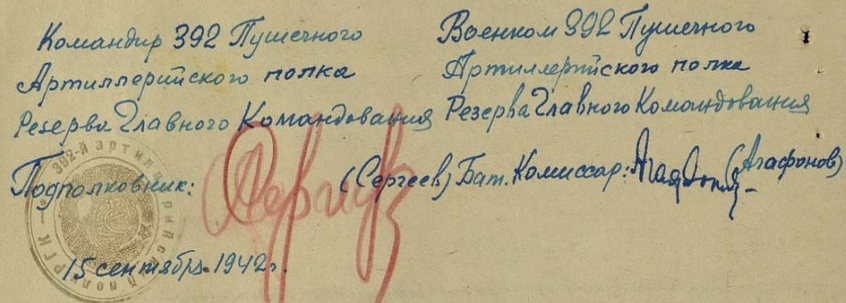 Командир 392 Пушечного
Артиллерийского полка
Резерва Главного Командования
Подполковник: Сергеев (Сергеев)
Военком 392 Пушечного
Артиллерийского полка
Резерва Главного Командования
Бат. Комиссар: Агафонов (Агафонов)
15 сентября 1942г.
392-й артиллерийский полк РГК